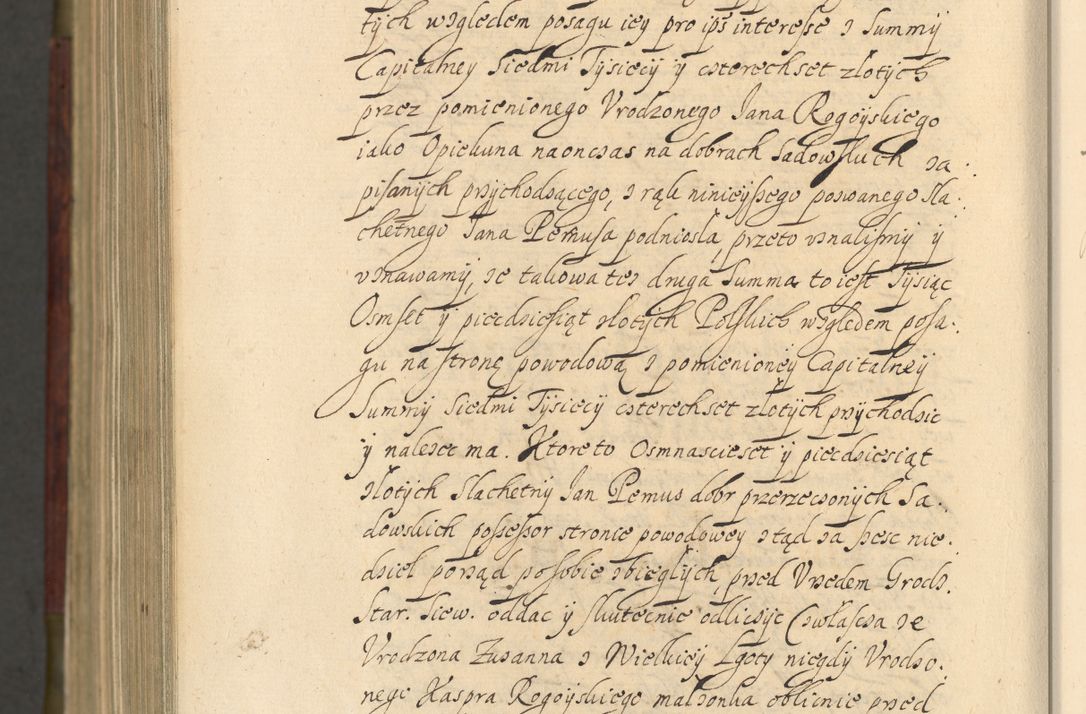 tých względem posagu iey pro ips interesse z Summý
Capitalney Siedmi Týsięcý ý czterechset złotých
przez pomienionego Vrodzonego Jana Rogoýskiego
iako Opiekuna naonczas na dobrach Sadowskich za:
pisaných przýchodzącego, z rąk ninieýszego pozwanego Sla:
chetnego Jana Pemusa podniosła, przeto vznalismý ý
vznawamý, ze takowa tez druga Summa to iest Týsiąc
Osmset ý piecdziesiąt złotých Polskich względem posa:
gu na stronę powodową z pomienioneý Capitalneý
Summý Siedmi Týsięcý czterechset złotých przýchodzic
ý nalezec ma. Ktore to Osmnascieset ý piecdziesiąt
złotých Slachetný Jan Pemus dobr przerzeczoných Sa:
dowskich possessor stronie powodowey ztąd za szesc nie:
dziel porząd po sobie zbieglých, przed Vrzedem Grodz.
Star. Siew. oddac ý skutecnie odliczýc (zwłascza ze
Vrodzona Zuzanna z Wielkieý Lgoty niegdý Vrodzo:
nego Kaspra Rogoýskiego małzonka oblicnie przed